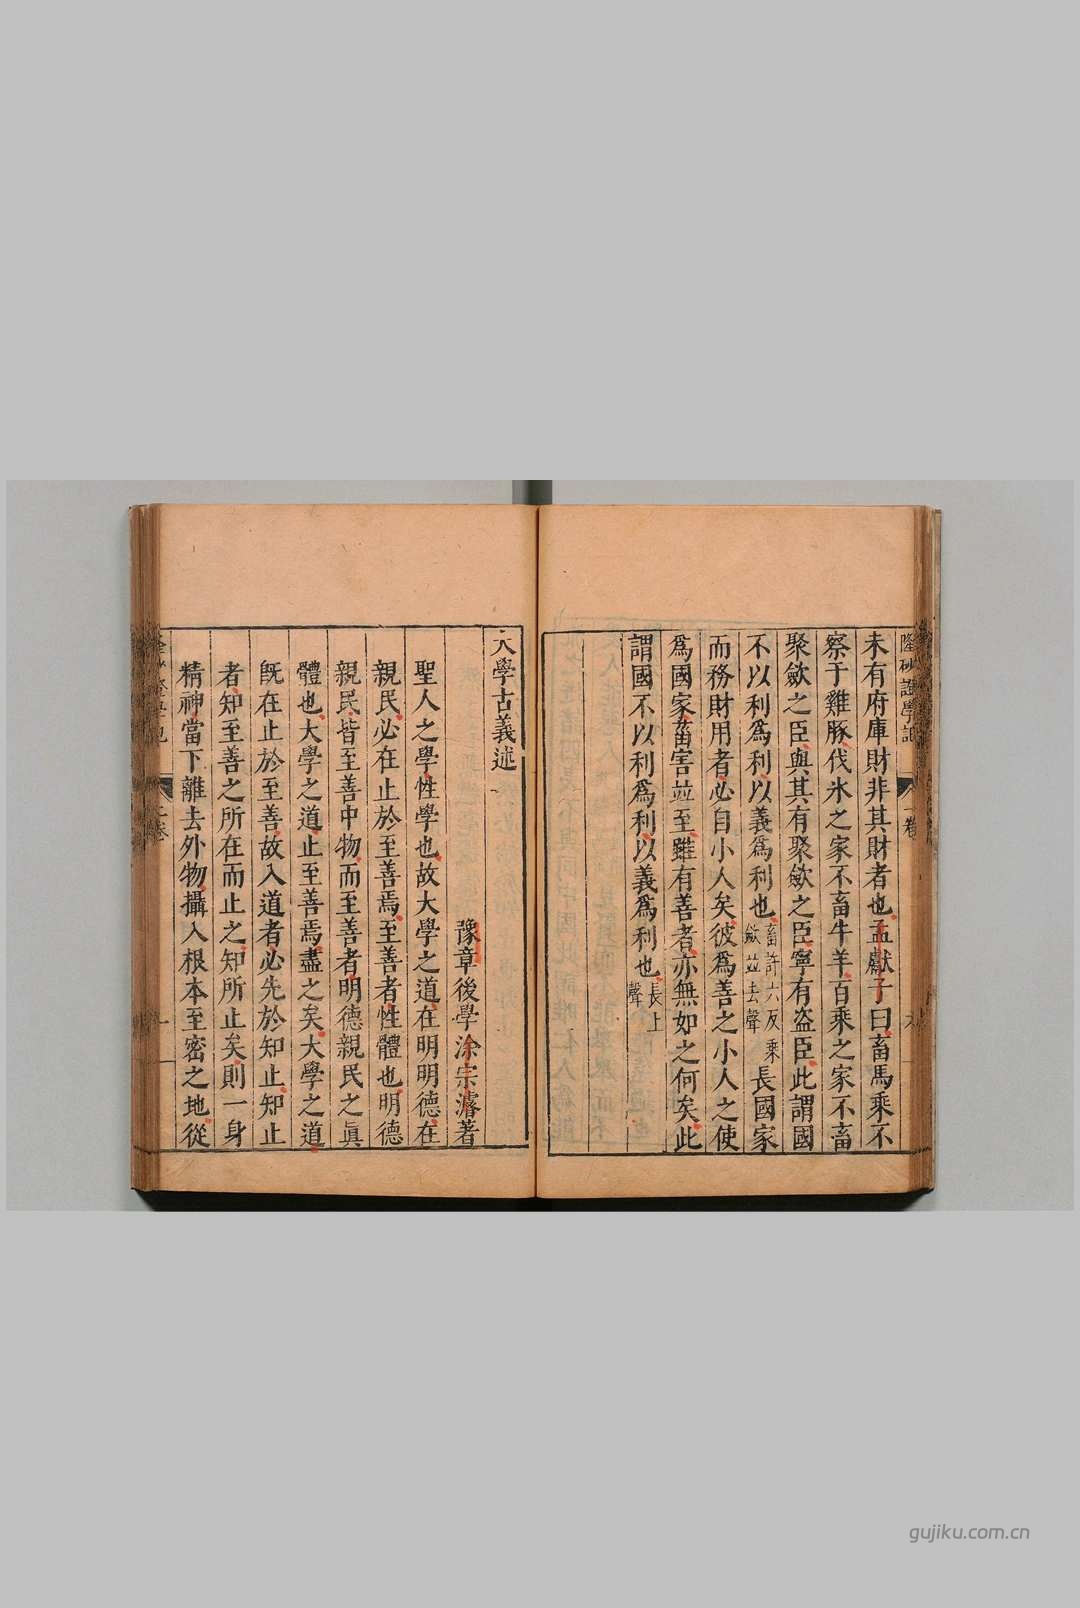 未有府庫財非其財者也孟獻子曰畜馬乘不
察于雞豚伐氷之家不畜牛羊百乘之家不畜
聚斂之臣與其有聚斂之臣寧有盗臣此謂國
不以利爲利以義爲利也畜許六反乘斂並去聲長國家
而務財用者必自小人矣彼爲善之小人之使
爲國家菑害並至雖有善者亦無如之何矣此
謂國不以利爲利以義爲利也長上聲
大學古義述
豫章後學涂宗濬著
聖人之學性學也故大學之道在明明德在
親民必在止於至善焉至善者性體也明德
親民皆至善中物而至善者明德親民之眞
體也大學之道止至善焉盡之矣大學之道
旣在止於至善故入道者必先於知止知止
者知至善之所在而止之知所止矣則一身
精神當下離去外物攝入根本至密之地從
gujiku.com.cn